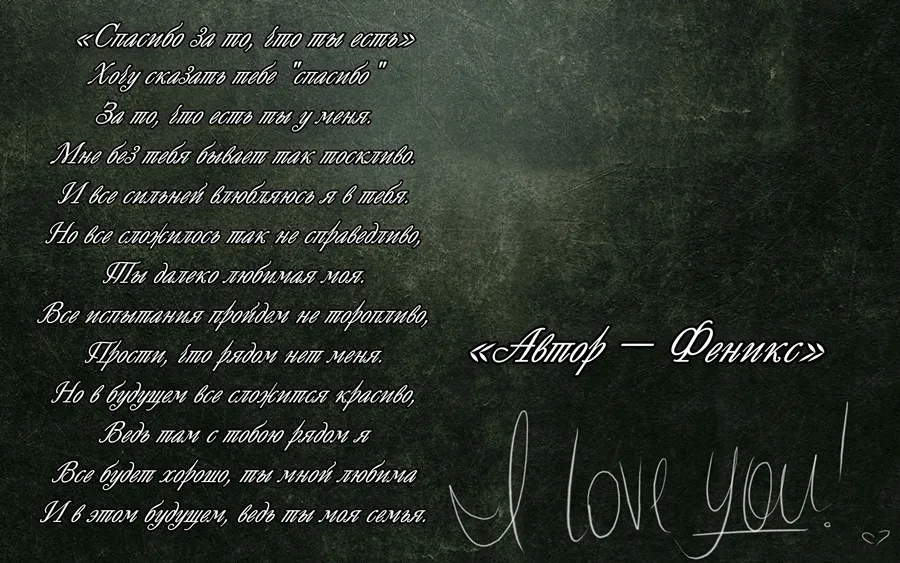 «Спасибо за то, что ты есть»
Хочу сказать тебе "спасибо"
За то, что есть ты у меня.
Мне без тебя бывает так тоскливо.
И все сильней влюбляюсь я в тебя.
Но все сложилось так не справедливо,
Ты далеко любимая моя.
Все испытания пройдем не торопливо,
Прости, что рядом нет меня.
Но в будущем все сложится красиво,
Ведь там с тобою рядом я
Все будет хорошо, ты мной любима
И в этом будущем, ведь ты моя семья.
«Автор — Феникс»
I love you!